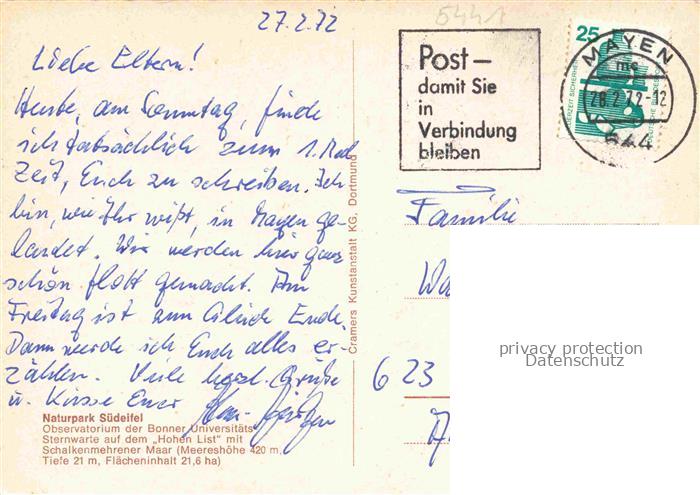 27.2.72
5441
Liebe Eltern!
Heute, am Sonntag, finde
ich tatsächlich zum 1. Mal
Zeit, Euch zu schreiben. Ich
bin, wie Ihr wißt, in Mayen ge-
landet. Wir werden hier ganz
schön flott gemacht. Am
Freitag ist zum Glück Ende.
Dann werde ich Euch alles er-
zählen. Viele herzl. Grüße
u. Küsse Euer
Naturpark Südeifel
Observatorium der Bonner Universitäts-
Sternwarte auf dem „Hohen List" mit
Schalkenmehrener Maar (Meereshöhe 420 m,
Tiefe 21 m, Flächeninhalt 21,6 ha)
Cramers Kunstanstalt KG, Dortmund
Post –
damit Sie
in
Verbindung
bleiben
25
JEDERZEIT SICHERHEIT
DEUTSCHE BUNDESPOST
MAYEN
mc
28.2.72-12
544
Familie
623
privacy protection
Datenschutz